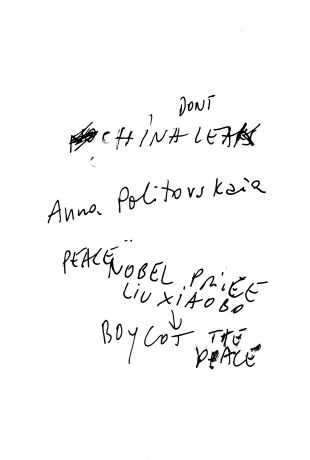 DONT
CHINA LEAKS
Anna Politovskaia
PEACE NOBEL PRICE
LIU XIAOBO
BOYCOT THE
PEACE